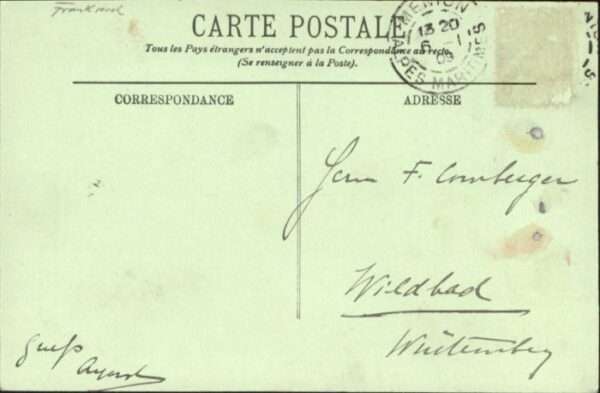 Frankreich
CARTE POSTALE
Tous les Pays étrangers n'acceptent pas la Correspondance au recto
(Se renseigner à la Poste).
MENTON
13 20
5 - 1
09
ALPES MARITIMES
CORRESPONDANCE
ADRESSE
Herrn F.
Wildbad
Würtemberg
Gruß
August